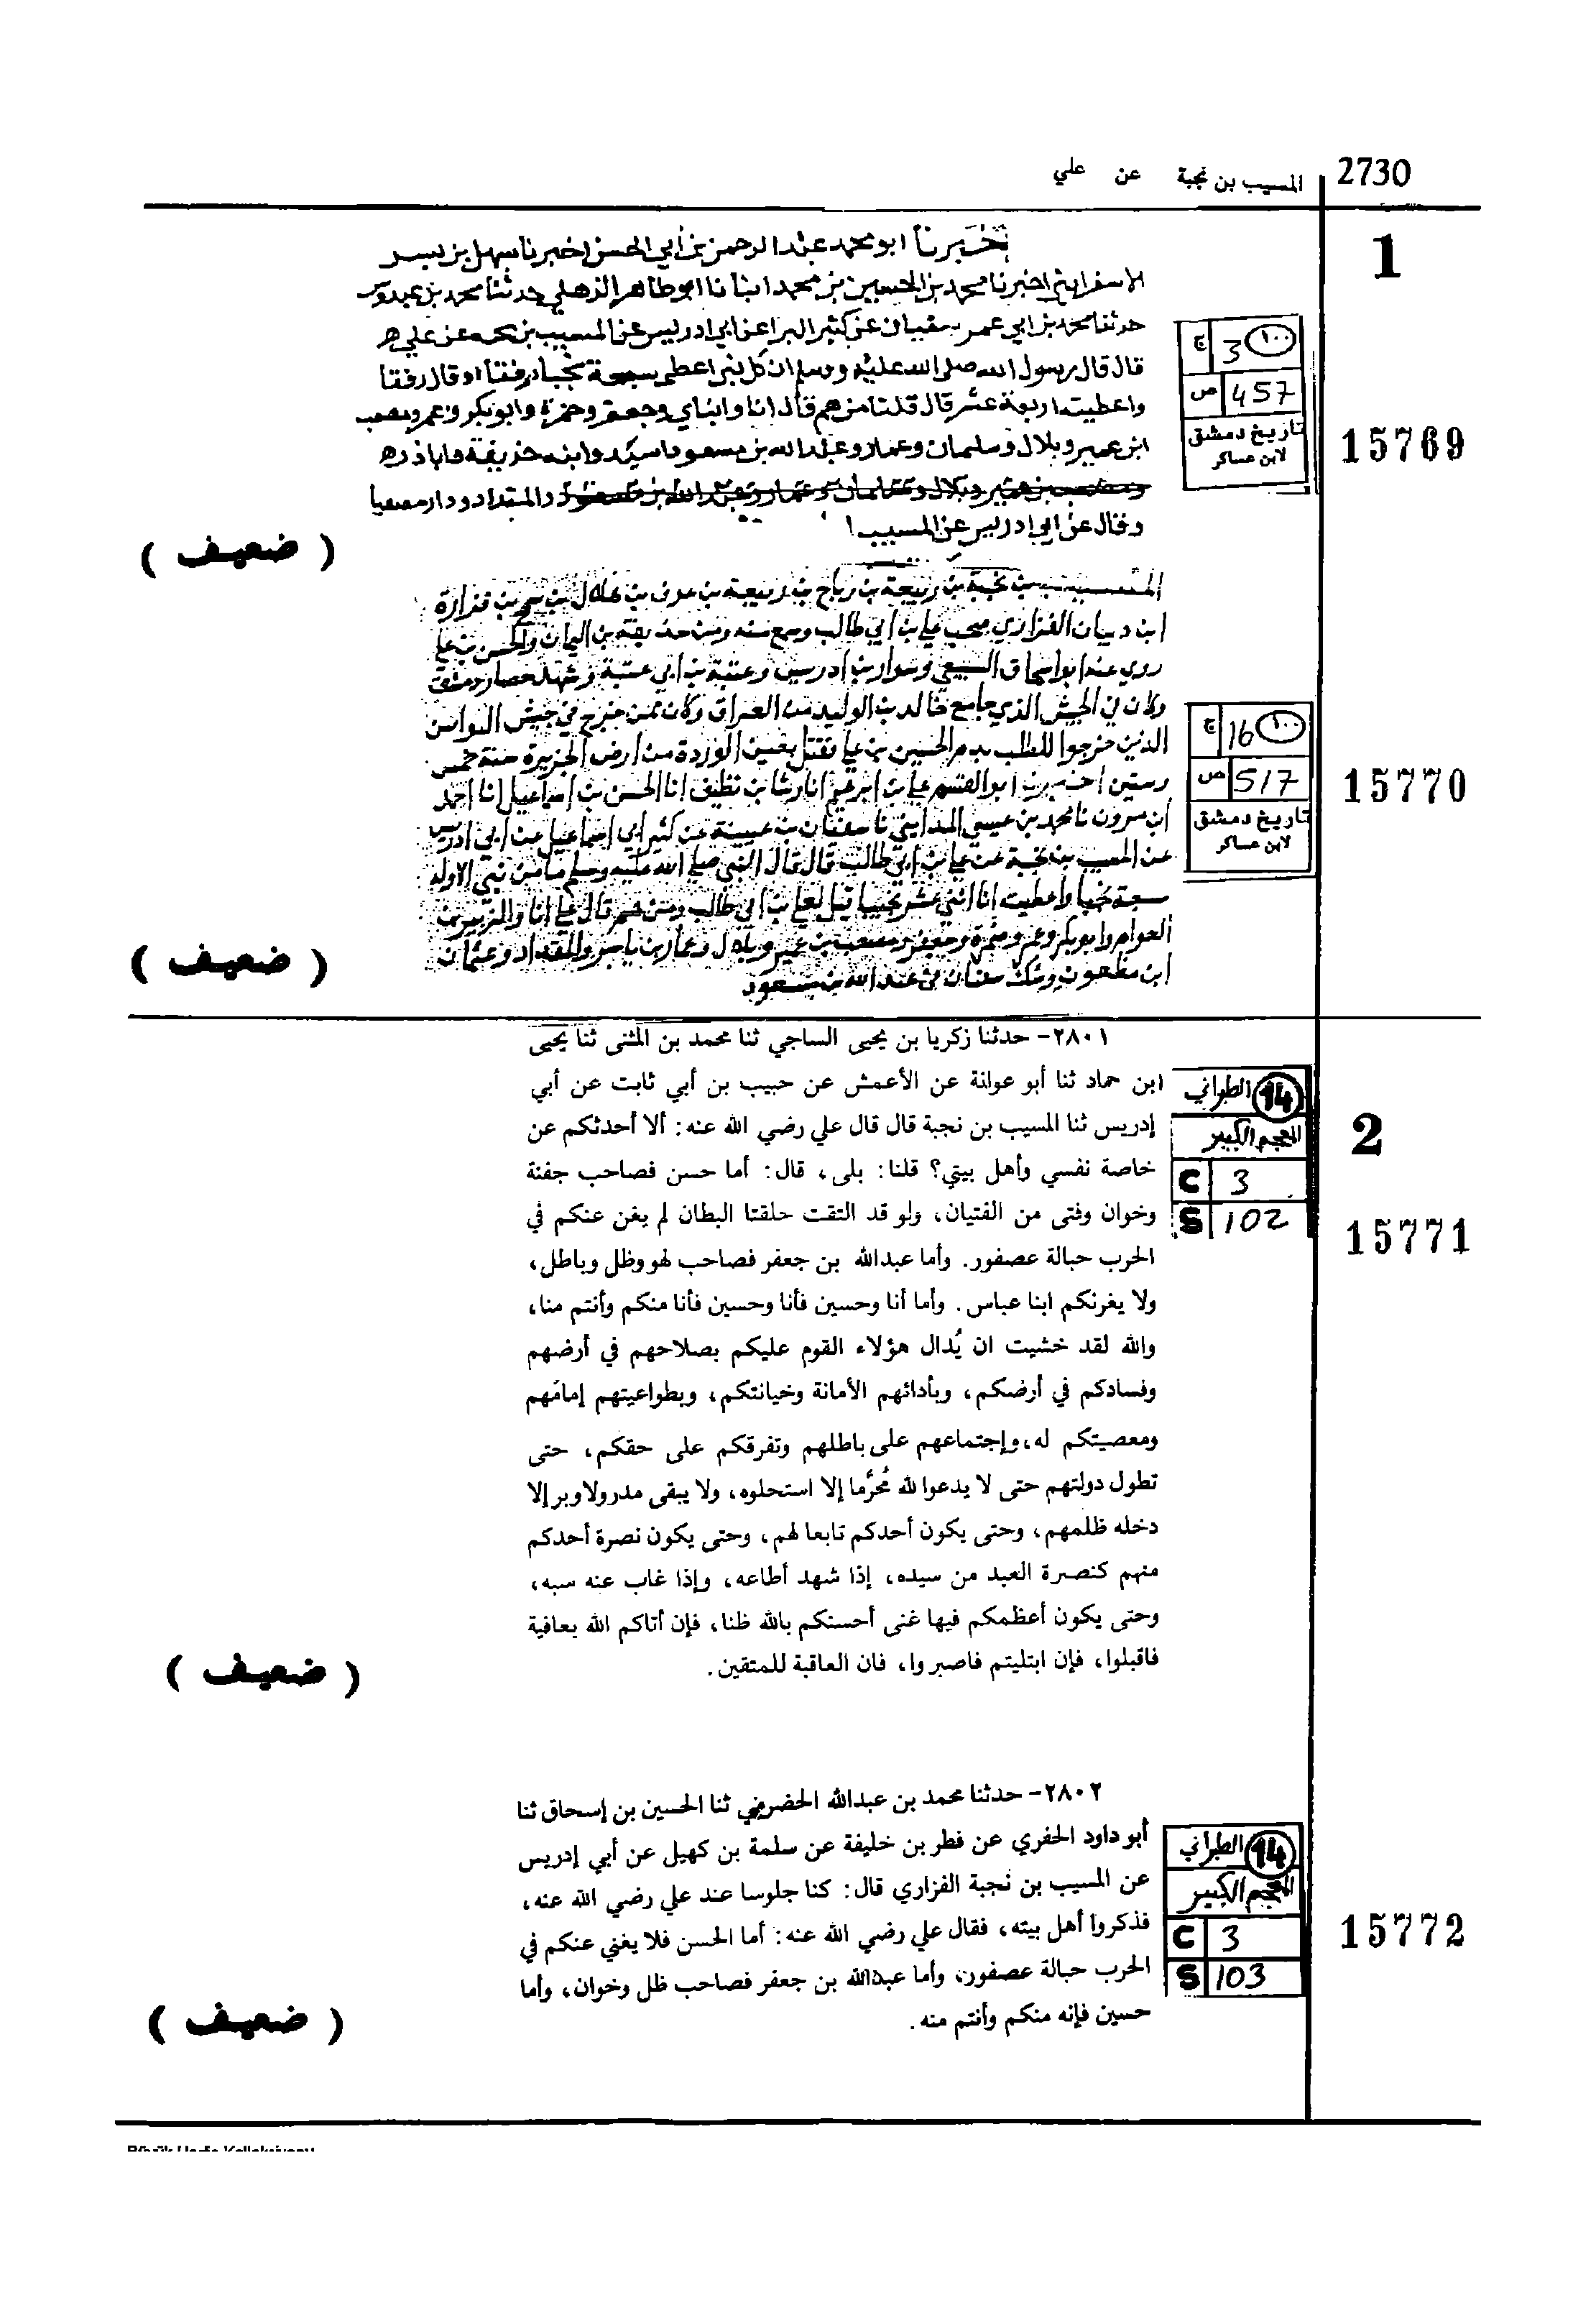 2730
المسيب بن نجبة عن علي
1
أخبرنا ابو محمد عبد الرحمن بن أبي الحسن اخبرنا سهل بن بسر
الاسفرايني اخبرنا محمد بن الحسين بن محمد انبانا ابو طاهر الذهلي حدثنا محمد بن عبدوس
حدثنا محمد بن ابي عمر سفيان عن كثير عن ابي ادريس عن المسيب بن نجبه عن علي
قال قال رسول الله صلى الله عليه وسلم ان كل نبي اعطي سبعة نجبا رفقا أو قال رفقا
واعطيت اربعة عشر قال قلنا من هم قال انا وابناي وجعفر وحمزة وابو بكر وعمر ومصعب
ابن عمير وبلال وسلمان وعمار وعبد الله بن مسعود وابو ذر
المقداد
وقال عن ابي ادريس عن المسيب
ج 3 ١٠٠
ص 457
تاريخ دمشق
لابن عساكر
15769
( ضعيف )
المسيب بن نجبة بن ربيعة بن رياح بن ربيعة بن عوف بن هلال بن شمخ بن فزارة
ابن ذبيان الفزاري صحب علي بن أبي طالب وسمع منه ومن حذيفة بن اليمان والحسن بن علي
روى عنه ابو اسحاق السبيعي وسوار بن ادريس وعتبة بن ابي عتبة وشهد حصار دمشق
وكان في الجيش الذي جا مع خالد بن الوليد من العراق وكان ممن خرج في جيش التوابين
الذين خرجوا للطلب بدم الحسين بن علي فقتل بعين الوردة من أرض الجزيرة سنة خمس
وستين اخبرنا ابو القسم علي بن ابرهيم انا رشا بن نظيف انا الحسن بن إسماعيل انا احمد
ابن مروان نا محمد بن عيسى المدايني نا سفيان بن عيينة عن كثير ابي إسماعيل عن ابي ادريس
عن المسيب بن نجبة عن علي بن ابي طالب قال قال النبي صلى الله عليه وسلم ما من نبي الا وله
سبعة نجبا واعطيت انا اثني عشر نجيبا قيل لعلي بن ابي طالب ومن هم قال علي انا والزبير بن
العوام وابو بكر وعمر وحمزة وجعفر ومصعب بن عمير وبلال وعمار بن ياسر والمقداد وعثمان
ابن مظعون وشك سفيان في عبد الله بن مسعود
ج 16 ١٠٠
ص 517
تاريخ دمشق
لابن عساكر
15770
( ضعيف )
٢٨٠١- حدثنا زكريا بن يحيى الساجي ثنا محمد بن المثنى ثنا يحيى
ابن حماد ثنا أبو عوانة عن الأعمش عن حبيب بن أبي ثابت عن أبي
إدريس ثنا المسيب بن نجبة قال قال علي رضي الله عنه: ألا أحدثكم عن
خاصة نفسي وأهل بيتي؟ قلنا: بلى، قال: أما حسن فصاحب جفنة
وخوان وفتى من الفتيان، ولو قد التقت حلقتا البطان لم يغن عنكم في
الحرب حبالة عصفور. وأما عبدالله بن جعفر فصاحب لهو وظل وباطل،
ولا يغرنكم ابنا عباس. وأما أنا وحسين فأنا وحسين فأنا منكم وأنتم منا،
والله لقد خشيت ان يُدال هؤلاء القوم عليكم بصلاحهم في أرضهم
وفسادكم في أرضكم، وبأدائهم الأمانة وخيانتكم، وبطواعيتهم إمامَهم
ومعصيتكم له، وإجتماعهم على باطلهم وتفرقكم على حقكم، حتى
تطول دولتهم حتى لا يدعوا لله مُحرَّما إلا استحلوه، ولا يبقى مدر ولا وبر إلا
دخله ظلمهم، وحتى يكون أحدكم تابعا لهم، وحتى يكون نصرة أحدكم
منهم كنصرة العبد من سيده، إذا شهد أطاعه، وإذا غاب عنه سبه،
وحتى يكون أعظمكم فيها غنى أحسنكم بالله ظنا، فإن أتاكم الله بعافية
فاقبلوا، فإن ابتليتم فاصبروا، فان العاقبة للمتقين.
14 الطبراني
المعجم الكبير
C 3
S 102
2
15771
( ضعيف )
٢٨٠٢- حدثنا محمد بن عبدالله الحضرمي ثنا الحسين بن إسحاق ثنا
أبو داود الحفري عن فطر بن خليفة عن سلمة بن كهيل عن أبي إدريس
عن المسيب بن نجبة الفزاري قال: كنا جلوسا عند علي رضي الله عنه،
فذكروا أهل بيته، فقال علي رضي الله عنه: أما الحسن فلا يغني عنكم في
الحرب حبالة عصفور، وأما عبدالله بن جعفر فصاحب ظل وخوان، وأما
حسين فإنه منكم وأنتم منه.
14 الطبراني
المعجم الكبير
C 3
S 103
15772
( ضعيف )